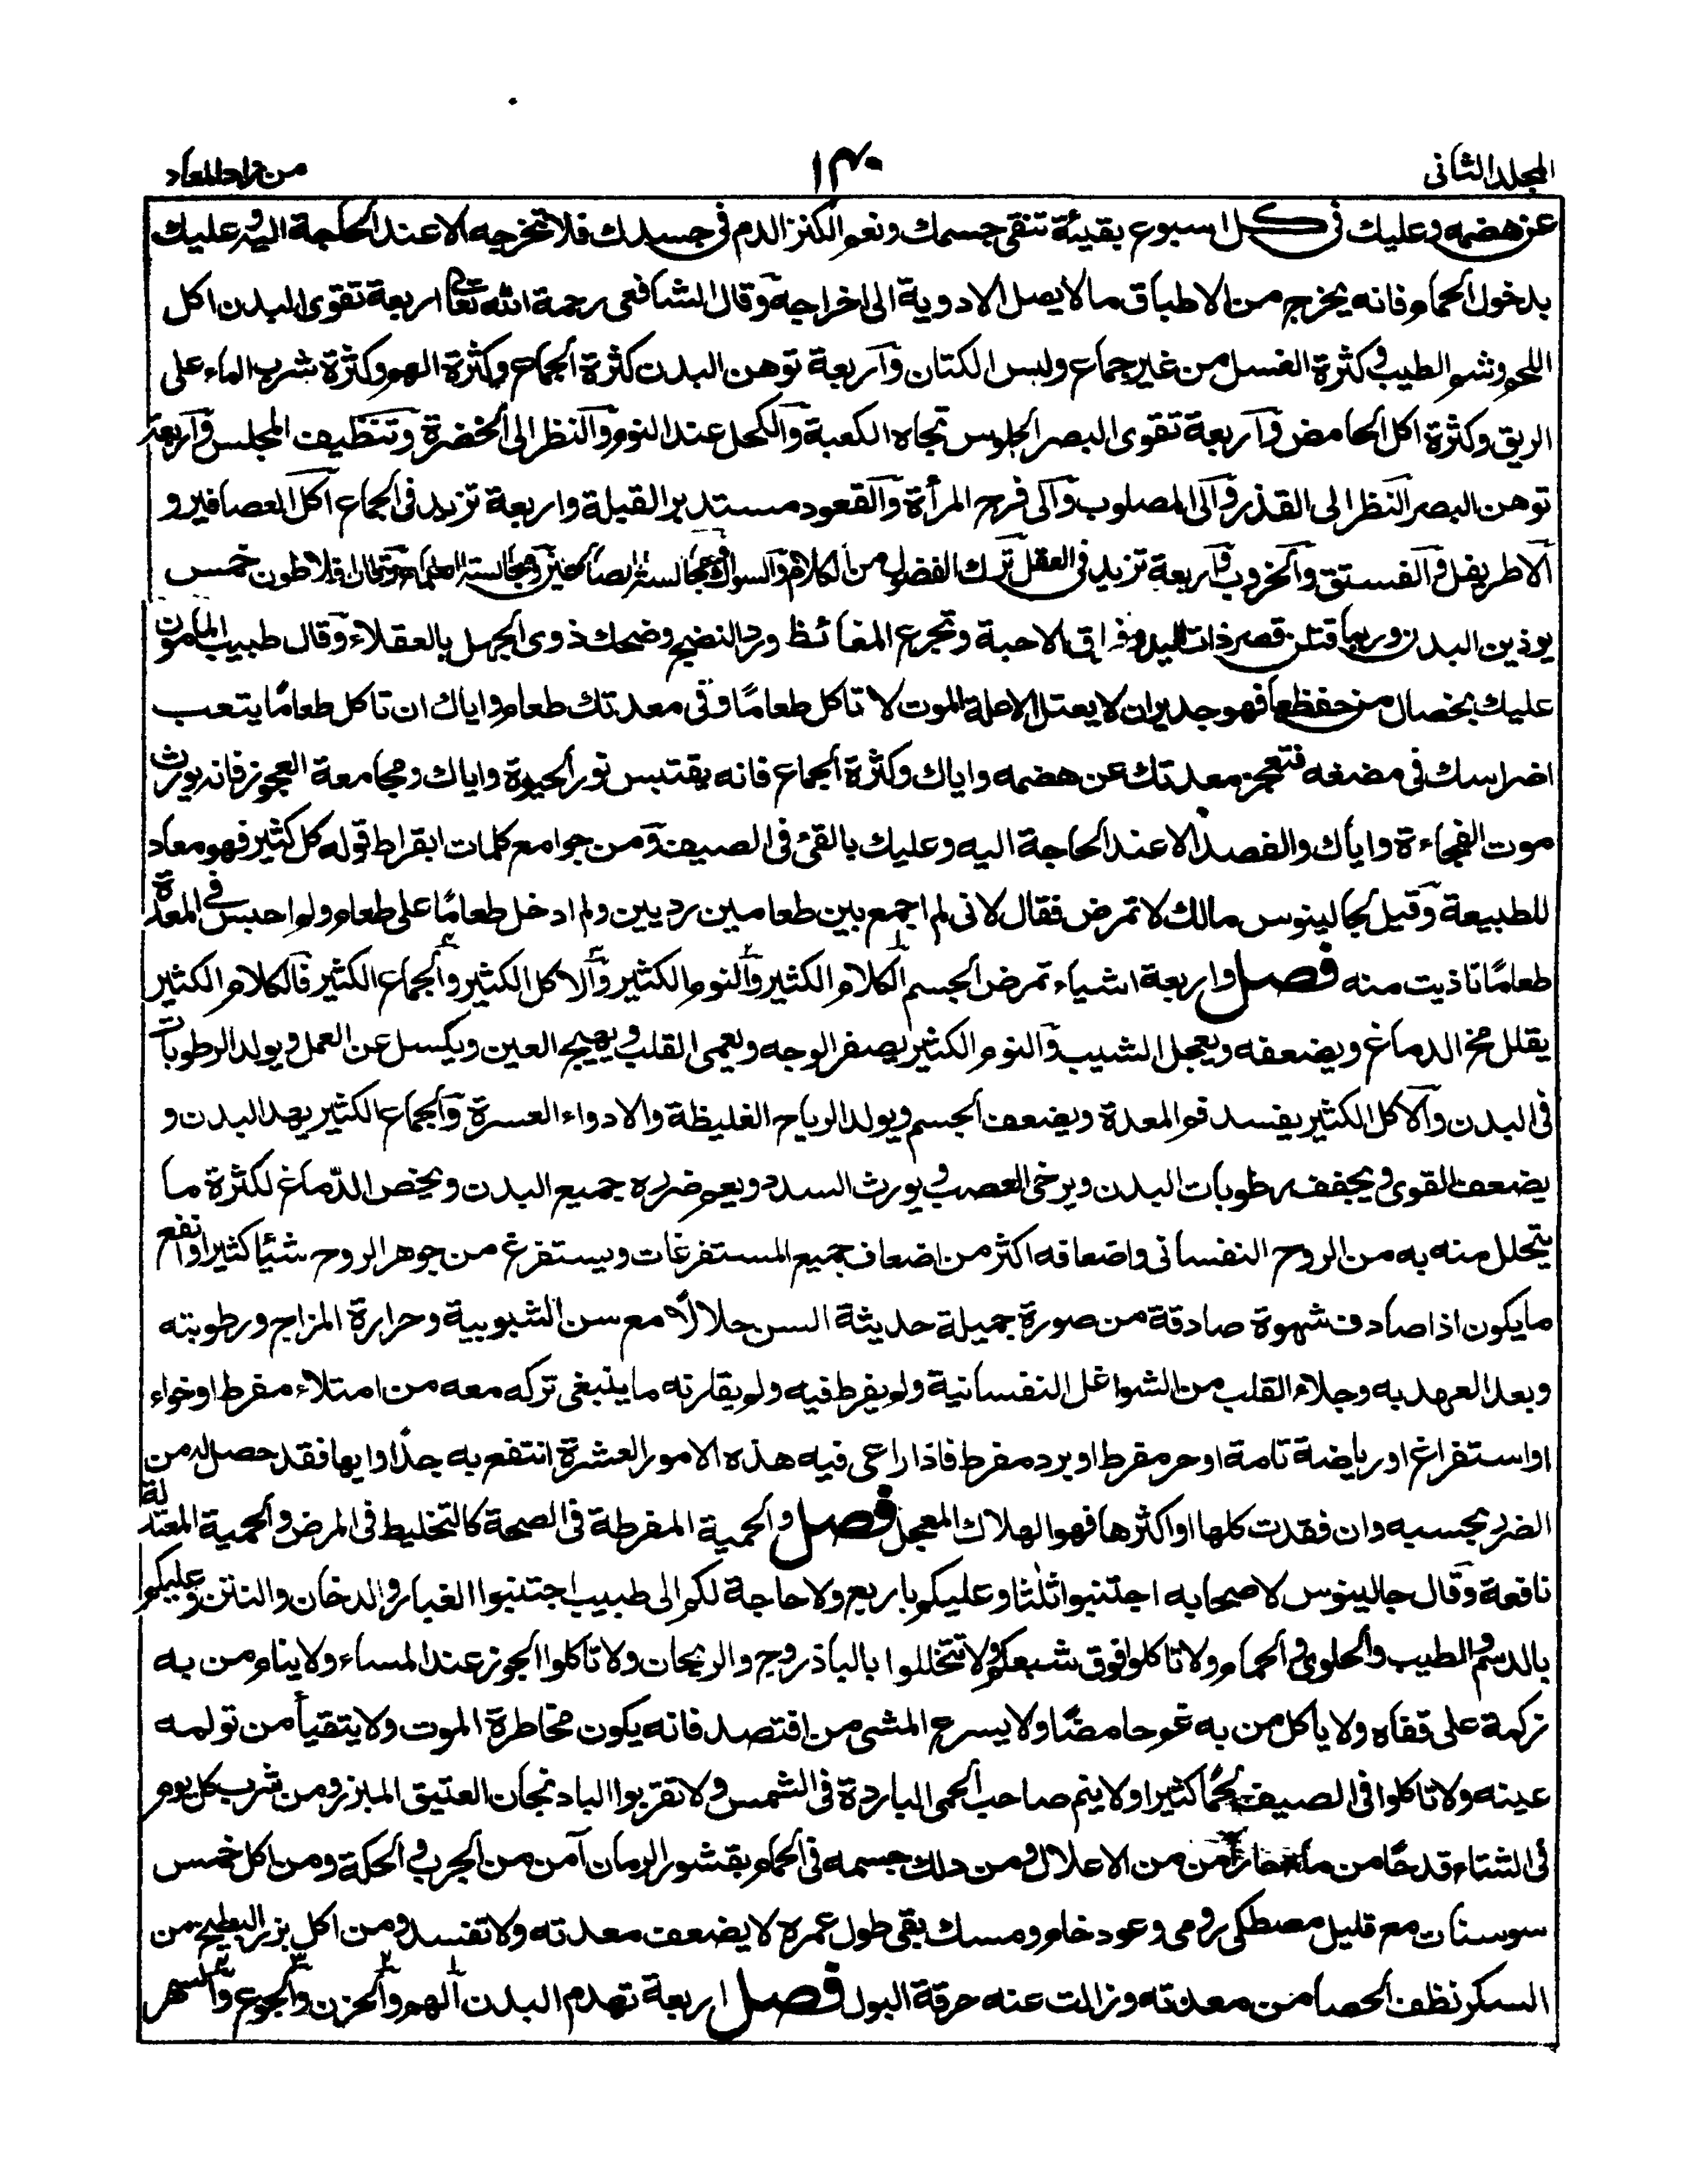 المجلد الثانى
١٣٠
من زاد المعاد
عن هضمه وعليك فى كل اسبوع بقيئة تنقى جسمك ونعم الكنز الدم فى جسدك فلا تخرجه الا عند الحاجة اليه وعليك
بدخول الحمام فانه يخرج من الاطباق ما لا يصل الادوية الى اخراجه وقال الشافعى رحمة الله تعالى اربعة تقوى البدن اكل
اللحم وشم الطيب و كثرة الغسل من غير جماع ولبس الكتان واربعة توهن البدن كثرة الجماع وكثرة الهم وكثرة شرب الماء على
الريق وكثرة اكل الحامض واربعة تقوى البصر الجلوس تجاه الكعبة والكحل عند النوم والنظر الى الخضرة وتنظيف المجلس واربعة
توهن البصر النظر الى القذر والى المصلوب والى فرج المرأة والقعود مستدبر القبلة واربعة تزيد فى الجماع اكل العصافير و
الاطريفل والفستق والخروب واربعة تزيد فى العقل ترك الفضول من الكلام والسواك ومجالسة الصالحين ومجالسة العلماء وقال افلاطون خمس
يوذين البدن وربما قتلن قصر ذات اليد وفراق الاحبة وتجرع المغائظ ورد النضح وضحك ذوى الجهل بالعقلاء وقال طبيب المامون
عليك بخصال من حفظها فهو جدير ان لا يعتل الا علة الموت لا تاكل طعامًا وفى معدتك طعام واياك ان تاكل طعامًا يتعب
اضراسك فى مضغه فتعجز معدتك عن هضمه واياك وكثرة الجماع فانه يقتبس نور الحيوة واياك ومجامعة العجوز فانه يورث
موت الفجاءة واياك والفصد الا عند الحاجة اليه وعليك بالقئ فى الصيف ومن جوامع كلمات ابقراط قوله كل كثير فهو معاد
للطبيعة وقيل لجالينوس مالك لا تمرض فقال لانى لم اجمع بين طعامين رديين ولم ادخل طعامًا على طعام ولم احبس فى المعدة
طعامًا تاذيت منه فصل واربعة اشياء تمرض الجسم الكلام الكثير والنوم الكثير والاكل الكثير والجماع الكثير فالكلام الكثير
يقلل مخ الدماغ ويضعفه ويعجل الشيب والنوم الكثير يصفر الوجه ويعمى القلب ويهيج العين ويكسل عن العمل ويولد الرطوبات
فى البدن والاكل الكثير يفسد فم المعدة ويضعف الجسم ويولد الرياح الغليظة والادواء العسرة والجماع الكثير يهد البدن و
يضعف القوى ويجفف رطوبات البدن ويرخى العصب ويورث السدد ويعم ضرره جميع البدن ويخص الدماغ لكثرة ما
يتحلل منه به من الروح النفسانى واضعافه اكثر من اضعاف جميع المستفرغات ويستفرغ من جوهر الروح شيئا كثيرا وانفع
ما يكون اذا صادف شهوة صادقة من صورة جميلة حديثة السن حلالًا مع سن الشبوبية وحرارة المزاج ورطوبته
وبعد العهد به وجلاء القلب من الشواغل النفسانية ولم يفرط فيه ولم يقارنه ما ينبغى تركه معه من امتلاء مفرط او خواء
او استفراغ او رياضة تامة او حر مفرط او برد مفرط فاذا راعى فيه هذه الامور العشرة انتفع به جدًا وايها فقد حصل له من
الضرر بحسبه وان فقدت كلها او اكثرها فهو الهلاك المعجل فصل والحمية المفرطة فى الصحة كالتخليط فى المرض والحمية المعتدلة
نافعة وقال جالينوس لاصحابه اجتنبوا ثلثا وعليكم باربع ولا حاجة لكم الى طبيب اجتنبوا الغبار والدخان والنتن وعليكم
بالدسم والطيب والحلوى والحمام ولا تاكلوا فوق شبعكم ولا تتخللوا بالباذروج والريحان ولا تاكلوا الجوز عند المساء ولا ينام من به
زكمة على قفاه ولا ياكل من به غم حامضًا ولا يسرع المشى من افتصد فانه يكون مخاطرة الموت ولا يتقيأ من تولمه
عينه ولا تاكلوا فى الصيف لحمًا كثيرا ولا ينم صاحب الحمى الباردة فى الشمس ولا تقربوا الباد نجان العتيق المبزر ومن شرب كل يوم
فى الشتاء قدحًا من ماء حار أمن من الاعلال ومن دلك جسمه فى الحمام بقشور الرمان آمن من الجرب والحكة ومن اكل خمس
سوسنات مع قليل مصطكى رومى وعود خام ومسك بقى طول عمره لا يضعف معدته ولا تفسد ومن اكل بزر البطيخ من
السكر نظف الحصا من معدته وزالت عنه حرقة البول فصل اربعة تهدم البدن الهم والحزن والجوع والسهر